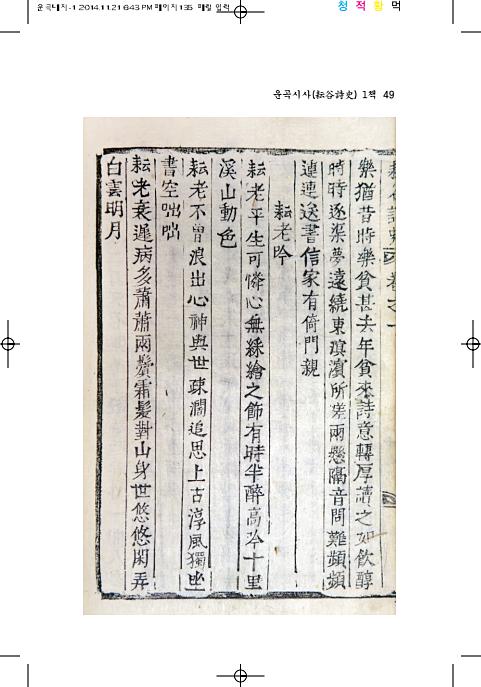 운곡대지-1 2014.11.21 6:43 PM 페이지135 매킬 일력
청 적 황 먹
운곡시사(耘谷詩史) 1책 49
樂猶昔時樂貧甚去年貧來詩意轉厚讀之如飮醇
時時逐渠夢遠繞東溟濱所嗟兩懸隔音問難頻頻
連連送書信家有倚門親
耘老吟
耘老平生可憐心無綵繪之飾有時半醉高吟十里
溪山動色
耘老不曾浪出心神與世疎濶追思上古淳風獨坐
書空咄咄
耘老衰遲病多蕭蕭兩鬢霜髮對山身世悠悠閑弄
白雲明月